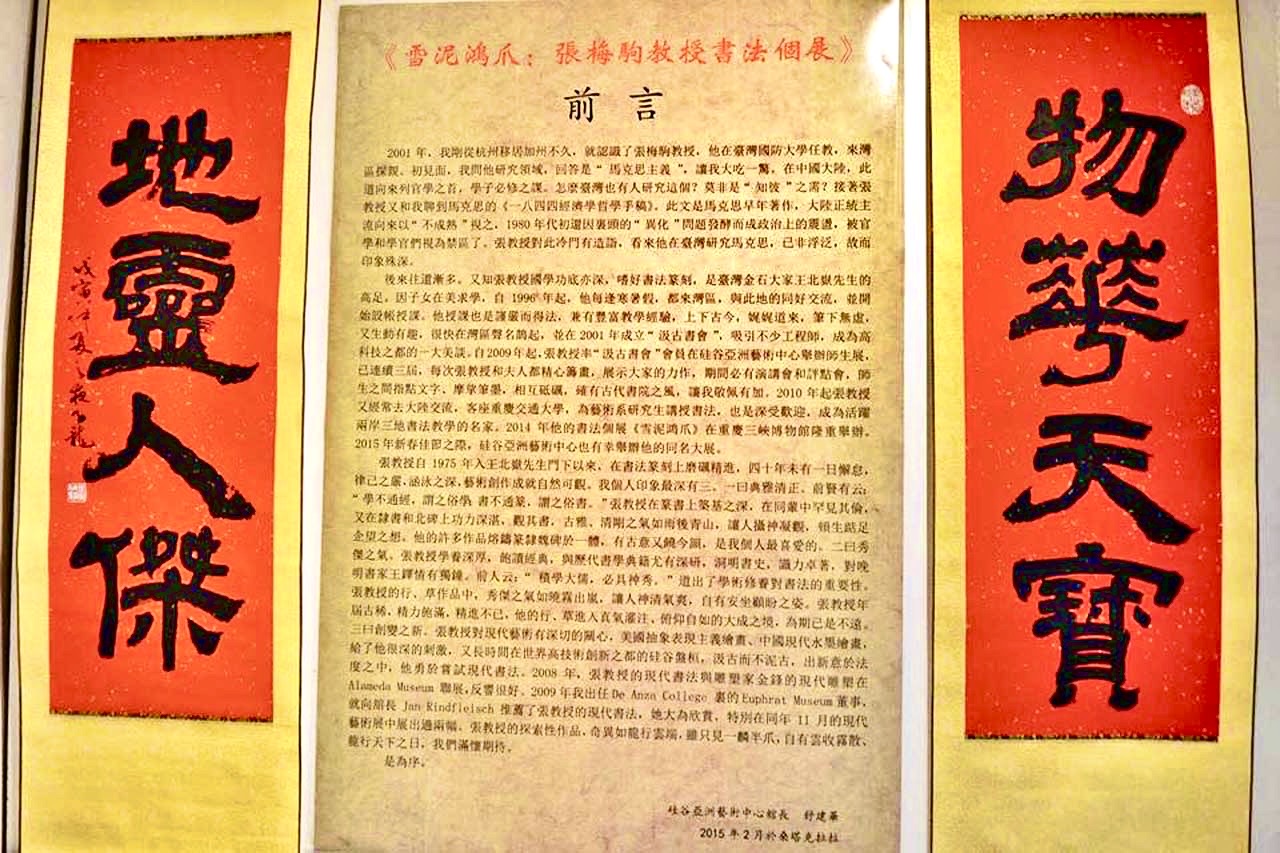 物華天寶
《雪泥鴻爪：張梅駒教授書法個展》
前 言
2001 年，我剛從杭州移居加州不久，就認識了張梅駒教授，他在臺灣國防大學任教，來灣
區探親。初見面，我問他研究領域，回答是“馬克思主義”，讓我大吃一驚。在中國大陸，此
道向來列官學之首，學子必修之課。怎麼臺灣也有人研究這個？莫非是“知彼”之需？接著張
教授又和我聊到馬克思的《一八四四經濟學哲學手稿》。此文是馬克思早年著作，大陸正統主
流向來以“不成熟”視之，1980 年代初還因裏頭的“異化”問題發酵而成政治上的震盪，被官
學和學官們視為禁區了。張教授對此冷門有造詣，看來他在臺灣研究馬克思，已非浮泛，故而
印象殊深。
後來往還漸多。又知張教授國學功底亦深，嗜好書法篆刻，是臺灣金石大家王北嶽先生的
高足。因子女在美求學，自 1996 年起，他每逢寒暑假，都來灣區，與此地的同好交流，並開
始設帳授課。他授課也是謹嚴而得法，兼有豐富教學經驗，上下古今，娓娓道來，筆下無虛，
又生動有趣，很快在灣區聲名鵲起，並在 2001 年成立“汲古書會”，吸引不少工程師，成為高
科技之都的一大美談。自 2009 年起，張教授率“汲古書會”會員在硅谷亞洲藝術中心舉辦師生展，
已連續三屆，每次張教授和夫人都精心籌畫，展示大家的力作，期間必有演講會和評點會，師
生之間指點文字，摩挲筆墨，相互砥礪，確有古代書院之風，讓我敬佩有加。2010 年起張教授
又經常去大陸交流，客座重慶交通大學，為藝術系研究生講授書法，也是深受歡迎，成為活躍
兩岸三地書法教學的名家。2014 年他的書法個展《雪泥鴻爪》在重慶三峽博物館隆重舉辦。
2015 年新春佳節之際，硅谷亞洲藝術中心也有幸舉辦他的同名大展。
張教授自 1975 年入王北嶽先生門下以來，在書法篆刻上磨礪精進，四十年未有一日懈怠，
律己之嚴，涵泳之深，藝術創作成就自然可觀。我個人印象最深有三。一曰典雅清正。前賢有云：
“學不通經，謂之俗學；書不通篆，謂之俗書。”張教授在篆書上築基之深，在同輩中罕見其倫，
又在隸書和北碑上功力深湛，觀其書，古雅、清剛之氣如雨後青山，讓人攝神凝觀，頓生踮足
企望之想。他的許多作品熔鑄篆隸魏碑於一體，有古意又饒今韻，是我個人最喜愛的。二曰秀
傑之氣。張教授學養深厚，飽讀經典，與歷代書學典籍尤有深研，洞明書史，識力卓著，對晚
明書家王鐸情有獨鍾。前人云：“積學大儒，必具神秀。”道出了學術修養對書法的重要性。
張教授的行、草作品中，秀傑之氣如曉霧出嵐，讓人神清氣爽，自有安坐顧盼之姿。張教授年
屆古稀，精力飽滿，精進不已，他的行、草進入真氣灌注、俯仰自如的大成之境，為期已是不遠。
三曰創變之新。張教授對現代藝術有深切的關心，美國抽象表現主義繪畫、中國現代水墨繪畫，
給了他很深的刺激，又長時間在世界高技術創新之都的硅谷盤桓，汲古而不泥古，出新意於法
度之中，他勇於嘗試現代書法。2008 年，張教授的現代書法與雕塑家金鋒的現代雕塑在
Alameda Museum 聯展，反響很好。2009 年我出任 De Anza College 裏的 Euphrat Museum 董事，
就向館長 Jan Rindfleisch 推薦了張教授的現代書法，她大為欣賞，特別在同年 11 月的現代
藝術展中展出過兩幅。張教授的探索性作品，奇異如龍行雲端，雖只見一鱗半爪，自有雲收霧散、
龍行天下之日，我們滿懷期待。
是為序。
硅谷亞洲藝術中心館長 舒建華
2015 年 2 月於桑塔克拉拉
地靈人傑